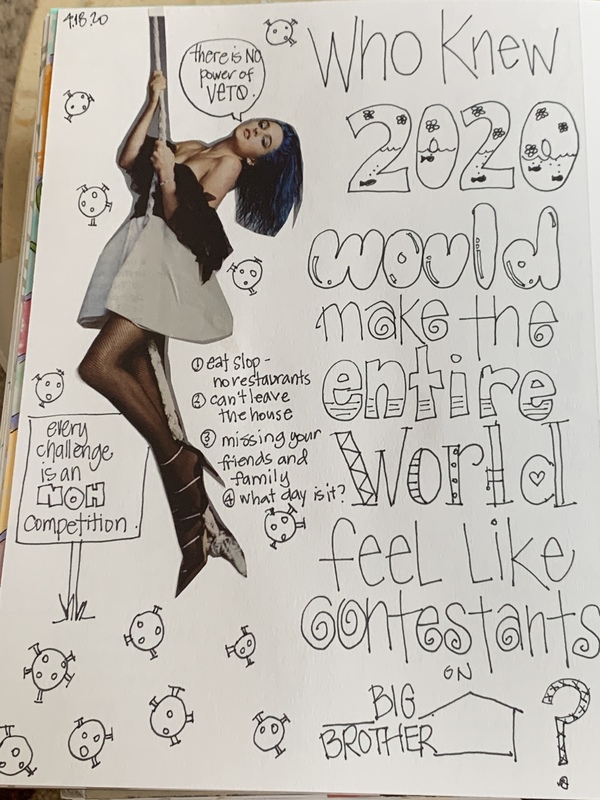 4.18.20
there is NO
power of
VETO.
Who Knew
2020
would
make the
entire
World
feel Like
contestants
ON
BIG
BROTHER
?
① eat slop -
no restaurants
② can't leave
the house
③ missing your
friends and
family
④ what day is it?
every
challenge
is an
HOH
Competition.